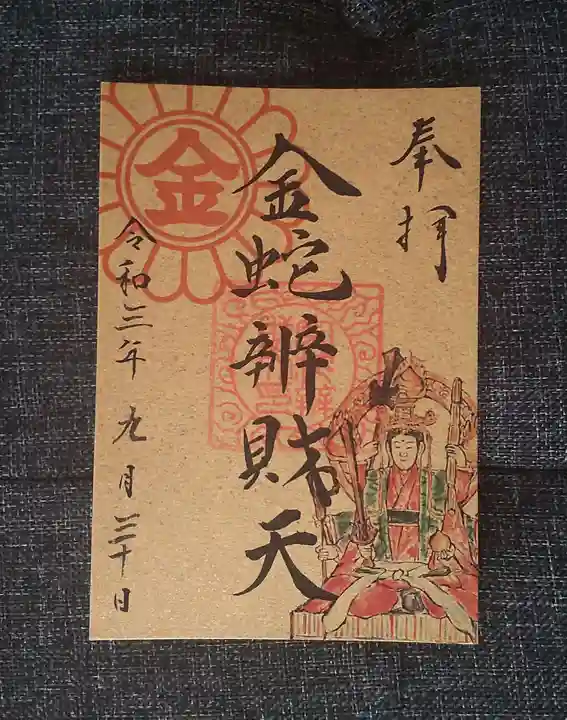 奉拝
金蛇辨財天
令和三年九月三十日
金